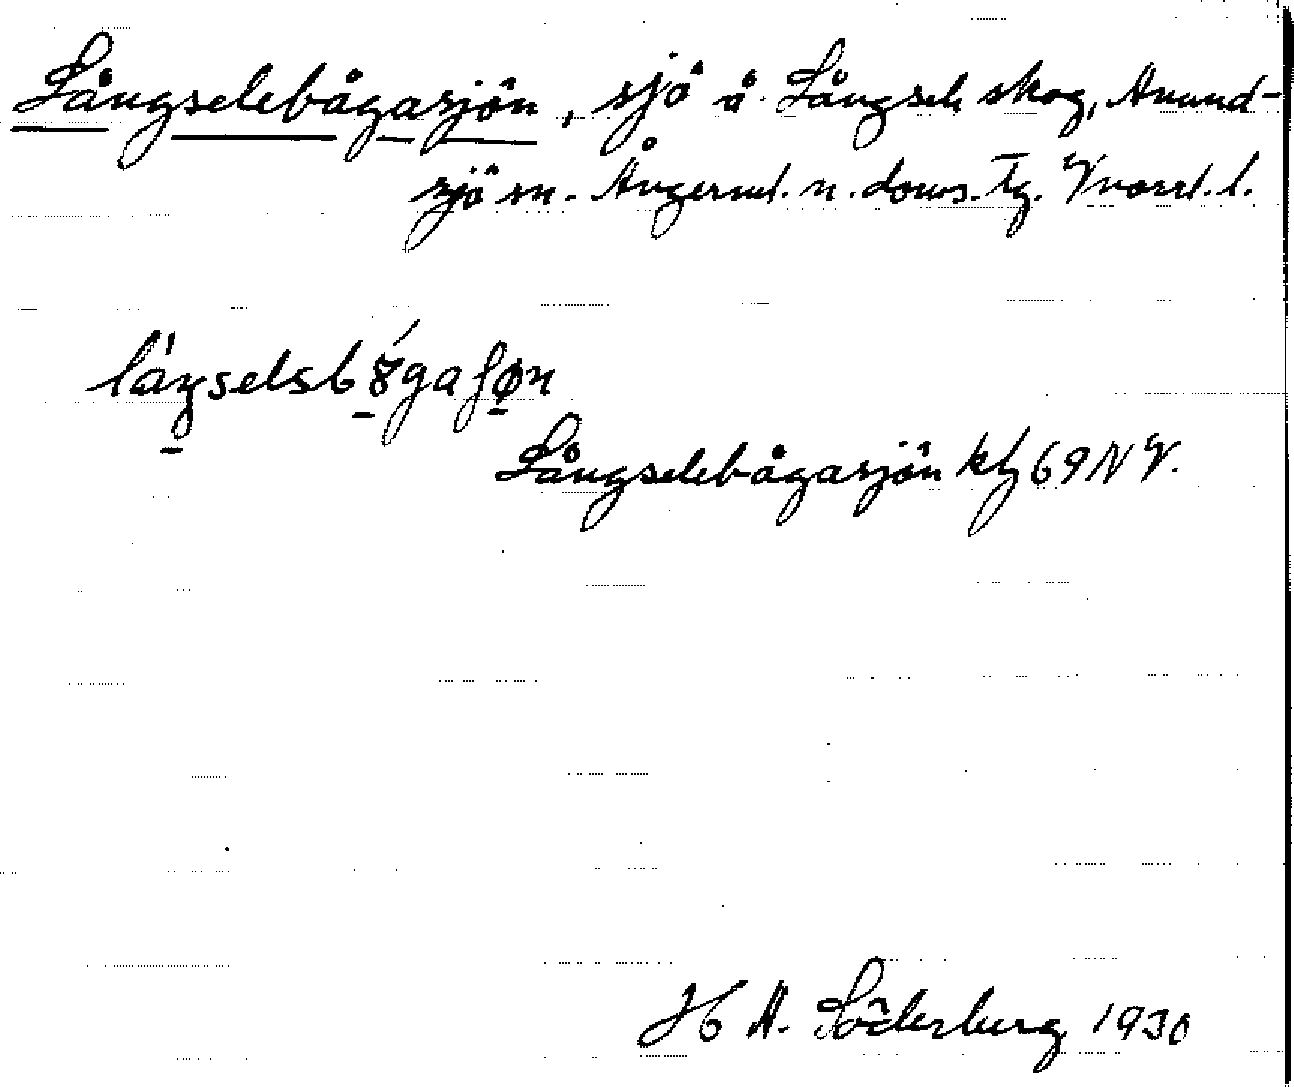 Långselebågasjön, sjö å Långsele skog, Anund-
sjö sn. Ångerml. n. doms. Tg. Vnorrl. l.
Långselebågasjön kbl 69 NV.
H A. Söderberg 1930